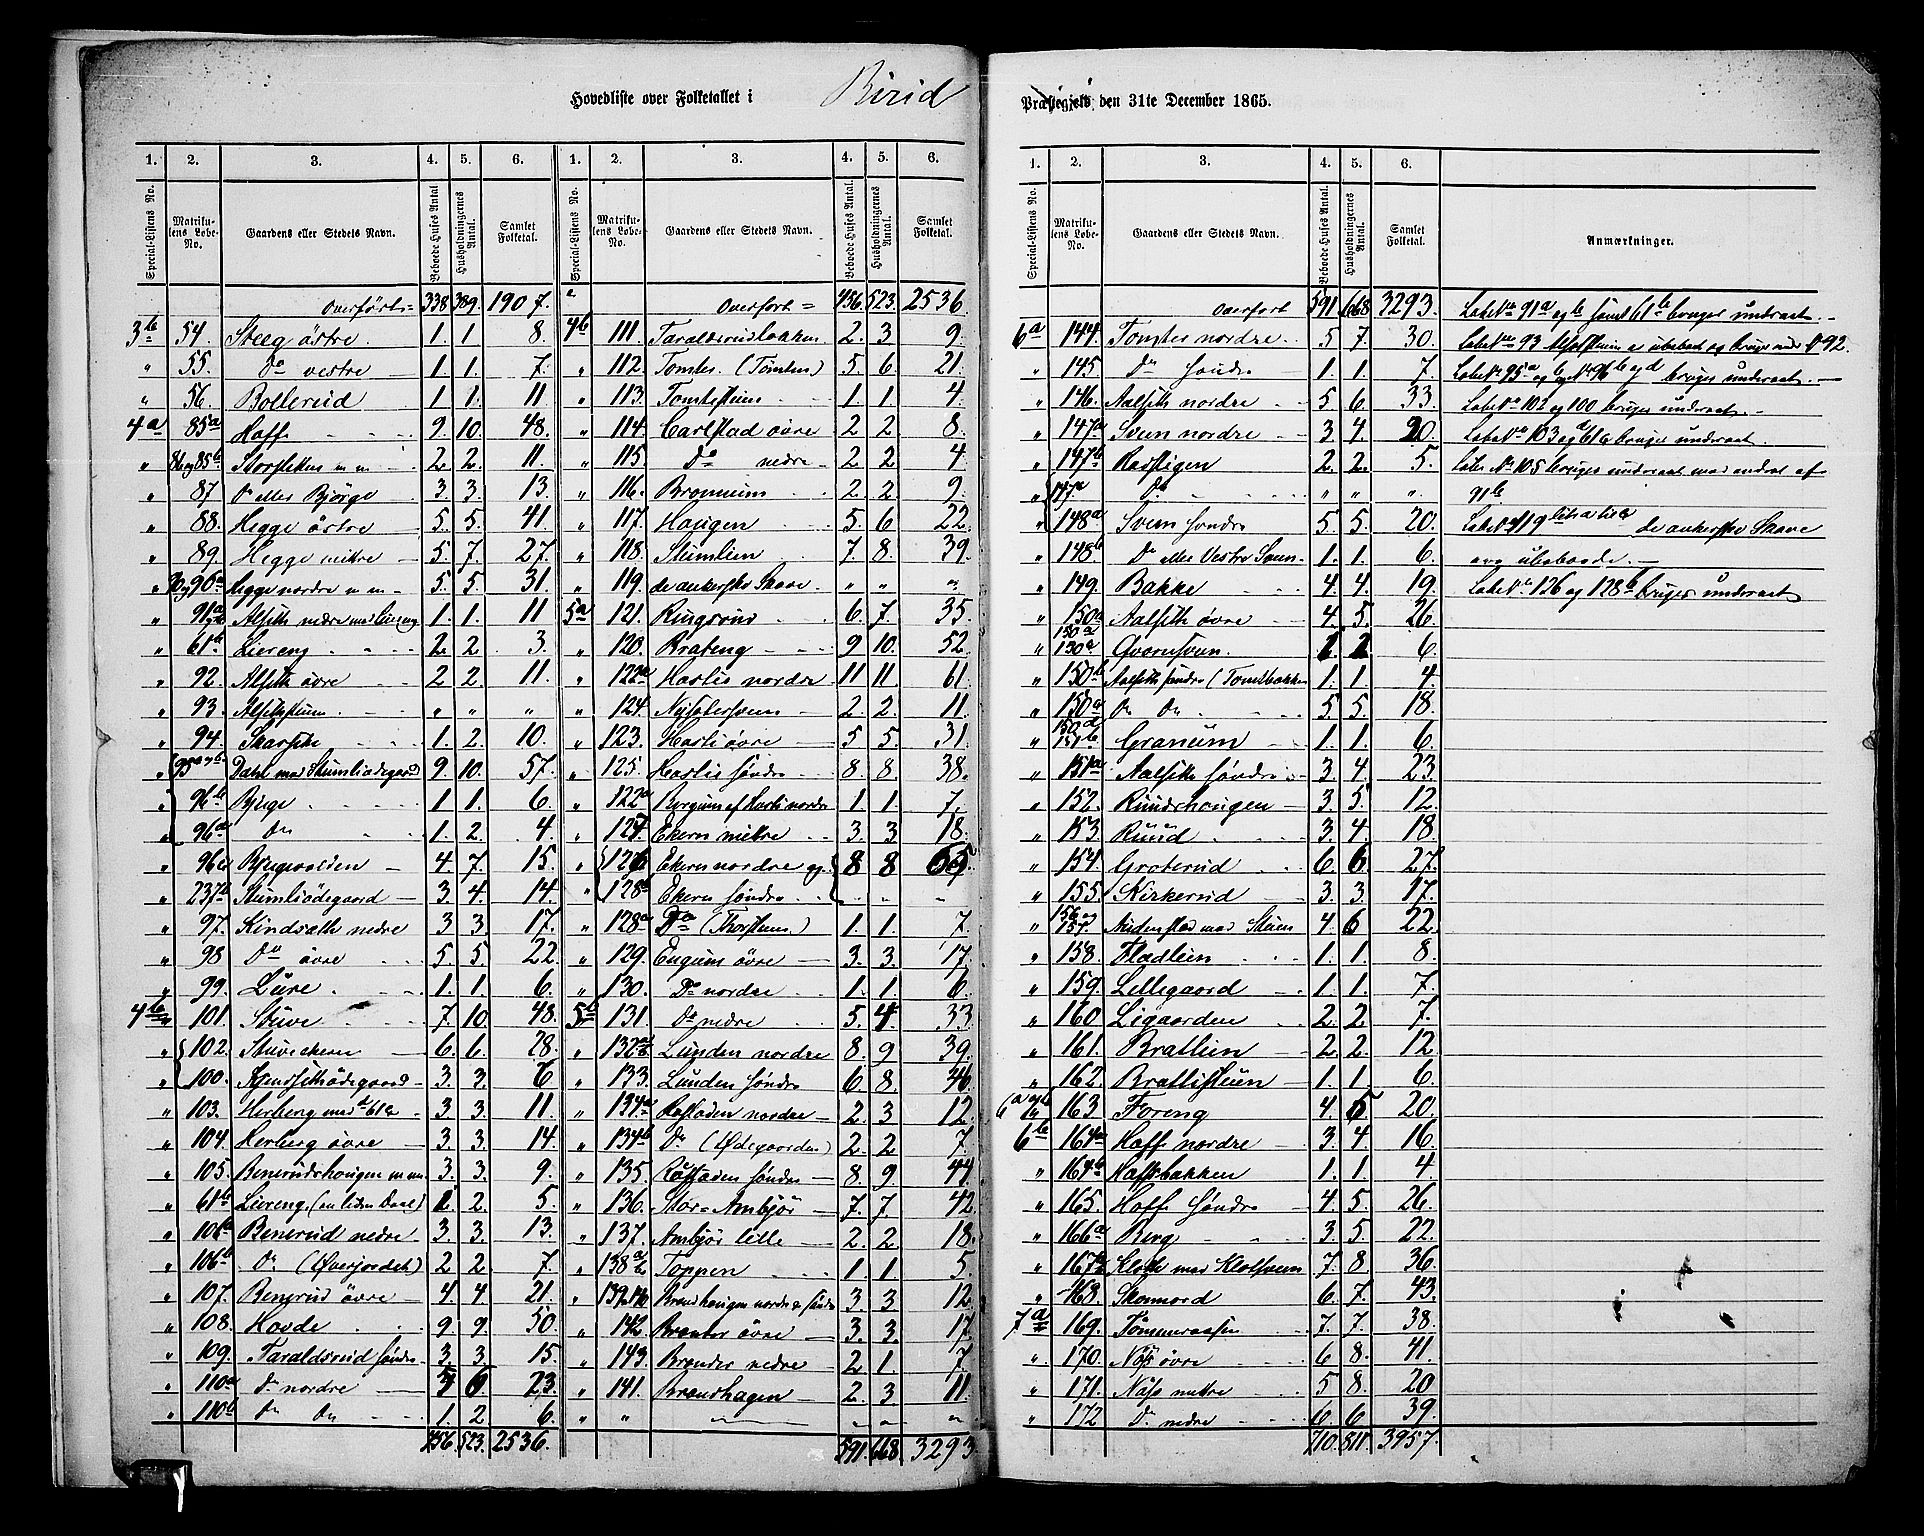 Hovedliste over Folketallet i Birid Præstegjeld den 31te December 1865.
1. 2. 3. 4. 5. 6. 1. 2. 3. 4. 5. 6.
Special-Listens No. Matrikulens Løbe-No. Gaardens eller Stedets Navn. Beboede Huses Antal Husholdningernes Antal. Samlet Folketal. Special-Listens No. Matrikulens Løbe-No. Gaardens eller Stedets Navn. Beboede Huses Antal. Husholdningernes Antal. Samlet Folketal.
Overført= 338 389. 1907. " Overført= 436. 523. 2536
3b 54. Steeg östre 1. 1 8. 4b 111. Taraldsrudbakken 2. 3 9.
" 55. Do vestre 1 1. 7. " 112. Tomter (Tomten) 5. 6 21.
" 56. Bollerud 1 1. 11 " 113. Tomtestuen 1. 1 4.
4a 85a Hoff 9. 10. 48. " 114. Carlstad øvre 2 2 8.
" 86 og 85b Storsletten m m 2. 2. 11. " 115. Do nedre 2. 2 4
" 87 Do eller Bjørge 3. 3. 13. " 116. Bronnum 2. 2 9.
" 88. Hegge östre 5. 5. 41. " 117. Haugen 5. 6 22.
" 89. Hegge mittre 5. 7. 27. " 118. Stumlien 7. 8. 39.
" 90a Hegge nordre m m 5. 5. 31. " 119. de ankerske Skove " " "
" 91a Alseth nedre med Liereng 1. 1. 11 5a 121. Ringsrud 6. 7 35.
" 61b Liereng 2. 2 3. " 120. Brateng 9 10. 52.
" 92. Alseth øvre 2 2. 11. " 122a Hasli nordre 11 11. 61.
" 93. Alsethstuen " " " " 124. Nysætersveen 2. 2. 11.
" 94. Skarseth 1. 2. 10. " 123. Hasli øvre 5 5. 31.
" 95a og b Dahl med Stumliødegaard 9. 10. 57. " 125. Haslie søndre 8. 8. 38.
" 96b Bjerge 1 1. 6. " 122a Bergum af Hasli nordre 1 1 7.
" 96a Do 1. 2. 4. " 127. Ekern mittre 3. 3 18.
" 96c Bjergevolden 4. 7. 15. " 126 Ekern nordre og 8 8 65.
" 237b Stumliødegaard 3. 4. 14. " 128b Ekern søndre " " "
" 97. Kindseth nedre 3 3. 17. " 128a Do (Thorstuen) 1. 1. 7.
" 98 Do øvre 5. 5 22. " 129. Engum øvre 3. 3. 17.
" 99. Lure 1. 1. 6. " 130. Do nordre 1. 1. 6.
4b 101. Stuve 7. 10. 48. 5b 131. Do nedre 5. 4. 33.
" 102. Stuveekern 6. 6. 28. " 132 Lunden nordre 8. 9 39.
" 100. Kjendsethødegaard 3. 3. 6 " 133. Lunden søndre 6. 8. 46.
" 103. Herberg med 61a 3. 3. 11. " 134a Rostaden nordre 2. 3 12.
" 104. Herberg øvre 3. 3 14. " 134b Do (Ødegaarden) 2. 2 7.
" 105. Benerudshaugen m m 3. 3. 9. " 135. Rostaden søndre 8. 9 44.
" 61b Liereng (en liden Deel) 1. 2. 5. " 136. Stor= Ambjör 7. 7. 42
" 106a Benerud nedre 3. 3. 13. " 137. Ambjör lille 2. 2 18.
" 106b Do (Øverjordet) 2 2. 7. " 138 Toppen 1. 1. 5.
" 107. Benerud øvre 4. 4. 21. " 139 Brandhaugen nordre & søndre 3. 3 12
" 108. Hovde 9. 9. 50. " 142 Brander øvre 3. 3. 17.
" 109. Taraldsrud søndre 3. 3. 15. " 143. Brander nedre 2. 1. 7.
" 110a Do nordre 5 6. 23. " 141. Brandhagen 2. 3 11.
" 110b Do Do 1. 2. 6. " " " " "
456 523. 2536. 591. 668. 3293
1. 2. 3. 4. 5. 6.
Special-Listens No. Matrikulens Løbe-No. Gaardens eller Stedets Navn. Beboede Huses Antal. Husholdningernes Antal. Samlet Folketal. Anmærkninger.
Overført 591 668. 3293. Løbe No 91a og b samt 61b bruges underet.
6a 144. Tomter nordre 5 7. 30. Løbe No 93 Alsethstuen er ubeboet og bruges under No 92.
" 145 Do søndre 1. 1. 7. Løbe No 95a og b og No 96b og d bruges underet.
" 146. Aalseth nordre 5 6. 33. Løbe No 102 og 100 bruges underet.
" 147a Sveen nordre 3 4. 20. Løbe No 103 og 61a bruges underet.
" 147b Rødstigen 2. 2. 5. Løbe No 105 bruges underet med endel af
" 147a Do " " " 91b
" 148a Sveen søndre 5. 5. 20. Løbe No 119 litra de ankerske Skove
" 148b Do eller Vestre Sveen 1. 1. 6. ere ubeboede.
" 149. Bakke 4. 4. 19. Løbe No 126 og 128b bruges underet
" 150a Aalseth øvre 4. 5. 26.
" 150a Qvernsveen 1. 1. 6.
" 150b Aalseth søndre (Tomtbakken 1. 1. 4
" 150a Do Do 5. 5. 18.
" 150d 151b Granum 1. 1. 6.
" 151a Aalseth søndre 3. 4. 23.
" 152. Rundhaugen 3. 5. 12.
" 153. Ruud 3. 4 18.
" 154. Groterud 6 6. 27.
" 155. Kirkerud 3. 3. 17.
" 156 og 157. Nedenstad med Stuen 4 6 22.
" 158. Fladlien 1. 1. 8.
" 159. Lillegaard 1. 1. 7.
" 160 Ligaarden 2 2. 7.
" 161. Bratlien 2 2. 12.
" 162 Brattistuen 1. 1 6.
6a og b 163 Foreng 4. 5 20.
6b 164a Hoff nordre 3. 4 16.
" 164b Hoffsbakken 1 1. 4.
" 165 Hoff søndre 4. 5 26.
" 166a Berg 3. 5 22.
" 167a Kloth med Klotsveen 7. 8 36.
" 168 Skonnord 6. 7. 43.
7a 169. Tømmeraasen 7. 7. 38.
" 170. Næs øvre 6 8. 41.
" 171. Næs mittre 5 8. 20
" 172 Do nedre 6. 6 39.
710. 811 3957.